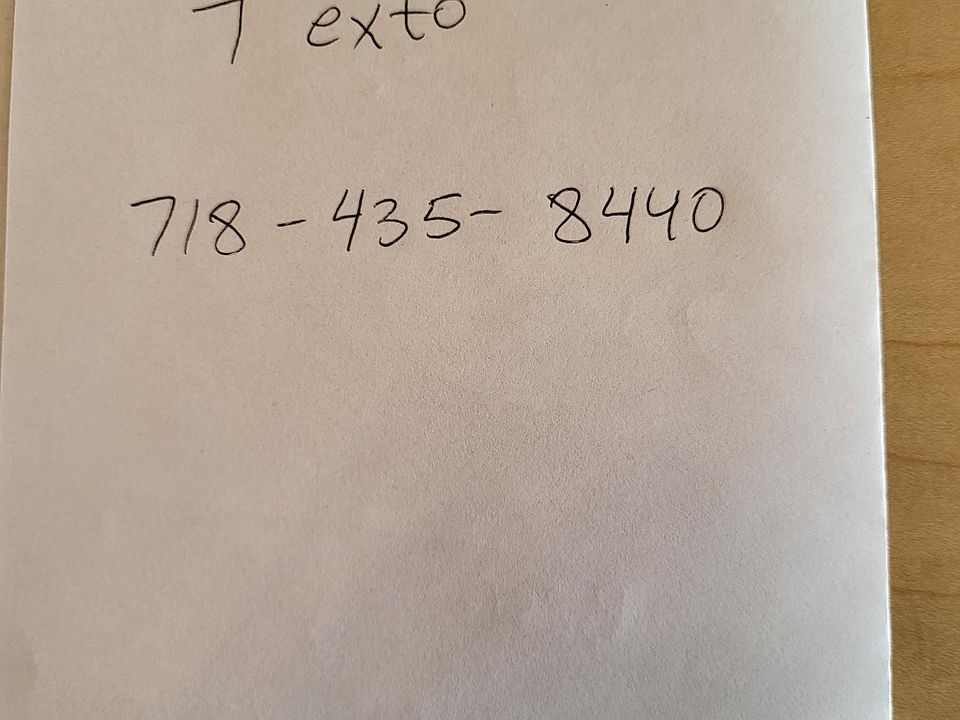 Texto
718-435-8440